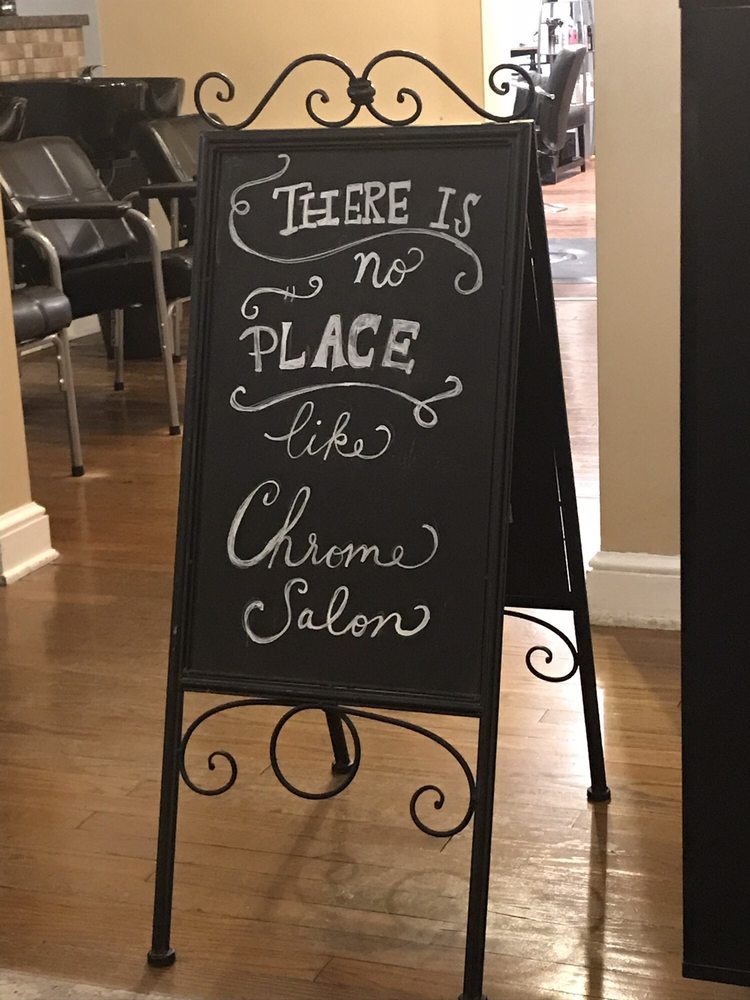 THERE IS
no
PLACE
like
Chrome
Salon